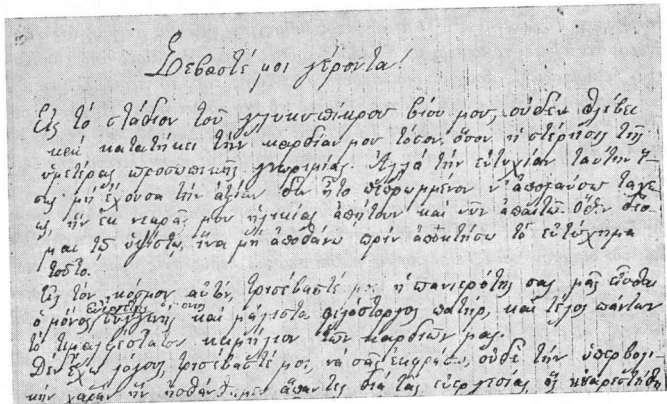 Σεβαστέ μοι γέροντα!
Εἰς τὸ στάδιον τοῦ γλυκυπίκρου βίου μου, οὐδὲν θλίβει
καὶ κατατήκει τὴν καρδίαν μου τόσον, ὅσον ἡ στέρησις τῆς
ὑμετέρας προσωπικῆς γνωριμίας. Ἀλλὰ τὴν εὐτυχίαν ταύτην ἴ-
σως μὴ ἔχουσα τὴν ἀξίαν δὲν ἦτο πεπρωμένον ν' ἀπολαύσω ταχέ-
ως, ἣν ἐκ νεαρᾶς μου ἡλικίας ἀπῄτουν καὶ νῦν ἀπαιτῶ. Ὅθεν δέο-
μαι τῷ ὑψίστῳ, ἵνα μὴ ἀποθάνω πρὶν ἀποκτήσω τὸ εὐτύχημα
τοῦτο.
Εἰς τὸν κόσμον αὐτόν, τρισέβαστέ μοι, ἡ πανιερότης σας μᾶς
ὁ μόνος εὐεργέτης καὶ μάλιστα φιλόστοργος πατήρ, καὶ τέλος πάντων
τὸ τιμαλφέστατον κειμήλιον τῶν καρδιῶν μας.
Δὲν ἔχω λόγους, τρισέβαστέ μοι, νὰ σᾶς ἐκφράσω, οὐδὲ τὴν ὑπερβολι-
κὴν χαρὰν ἣν ἠσθάνθημεν ἅπαντες διὰ τὰς εὐεργεσίας